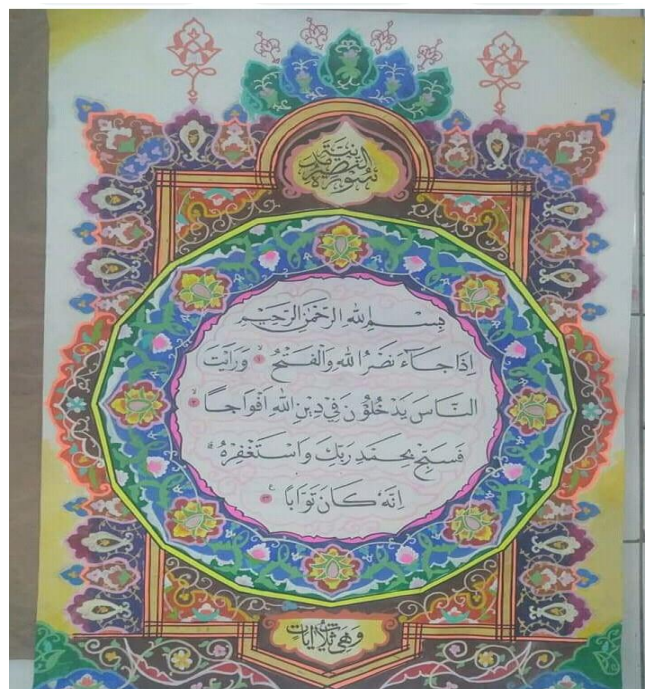 سورة النصر مدنية
بِسْمِ اللهِ الرَّحْمٰنِ الرَّحِيْمِ
اِذَا جَآءَ نَصْرُ اللهِ وَالْفَتْحُ ۙ ١ وَرَاَيْتَ
النَّاسَ يَدْخُلُوْنَ فِيْ دِيْنِ اللهِ اَفْوَاجًا ۙ ٢
فَسَبِّحْ بِحَمْدِ رَبِّكَ وَاسْتَغْفِرْهُ ۗ
اِنَّهٗ كَانَ تَوَّابًا ࣖ ٣
وهي ثلاث ايات